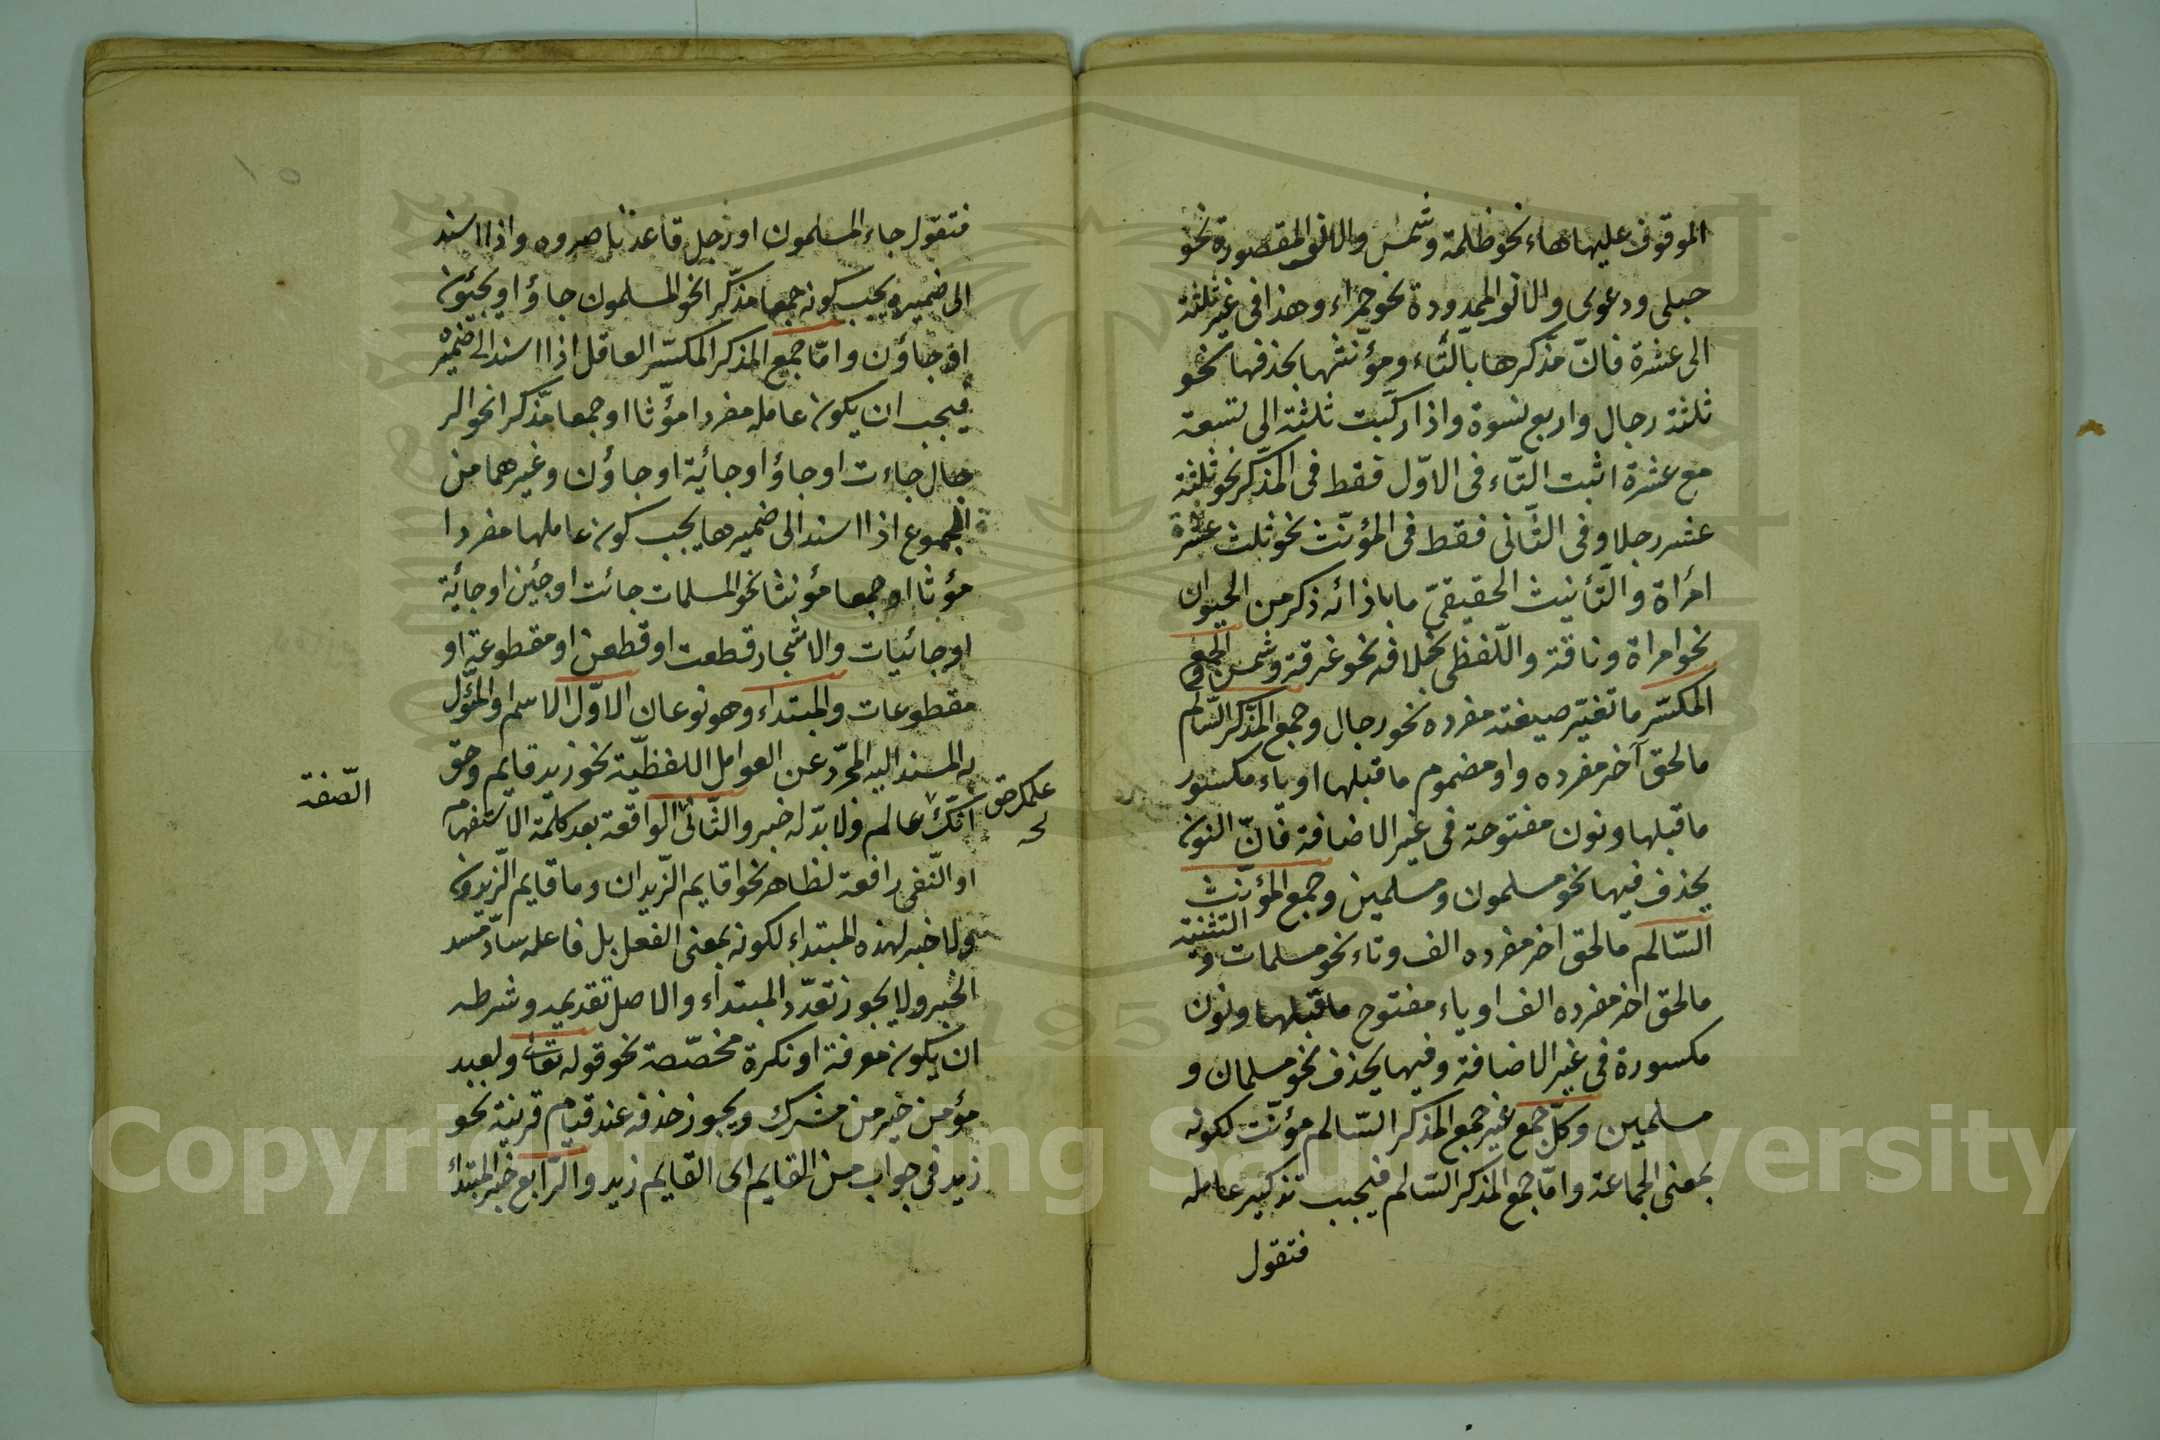 الموقوف عليها هاء نحو ظلمة وشمس والالف المقصورة نحو
حبلى ودعوى والالف الممدودة نحو حمراء وهذا فى غير ثلثة
الى عشرة فانّ مذّكرها بالتّاء ومؤنّثها بحذفها نحو
ثلثة رجال واربع نسوة واذا ركّبت ثلثة الى تسعة
مع عشرة اثبت التّاء فى الاوّل فقط فى المذّكر نحو ثلثة
عشر رجلا وفى الثّانى فقط فى المؤنّث نحو ثلث عشرة
امرأة والتّأنيث الحقيقىّ ما باذائه ذكر من الحيوان
نحو امراة وناقة واللّفظى بخلافه نحو غرفة وشمس والجمع
المكسّر ما تغيّر صيغة مفرده نحو رجال وجمع المذّكر السّالم
ما لحق آخر مفرده واو مضموم ما قبلها او ياء مكسور
ما قبلها ونون مفتوحة فى غير الاضافة فانّ النون
يحذف فيها نحو مسلمون ومسلمين وجمع المؤنّث
السّالم ما لحق اخر مفرده الف وتاء نحو مسلمات و التثنية
ما لحق اخر مفرده الف او ياء مفتوح ما قبلها ونون
مكسورة فى غير الاضافة وفيها يحذف نحو مسلمان و
مسلمين وكلّ جمع غير جمع المذكر السّالم مؤنّث لكونه
بمعنى الجماعة وامّا جمع المذكر السّالم فيجب تذكير عامله
فتقول
فتقول جاء المسلمون او رجل قاعد ناصروه واذا اسند
الى ضميره يجب كونه جمعا مذّكرا نحو المسلمون جاؤا او يجيئون
او جاؤن وامّا جمع المذكر المكسّر العاقل اذا اسند الى ضميره
فيجب ان يكون عامله مفردا مؤنّثا او جمعا مذّكرا نحو الر
جال جاءت او جاؤا او جائية او جاؤن وغيرهما من
الجموع اذا اسند الى ضميرها يجب كون عاملها مفردا
مؤنثا او جمعا مؤنثا نحو المسلمات جائت او جئين او جائية
او جائيات والاشجار قطعت او قطعن او مقطوعة او
مقطوعات والمبتداء وهو نوعان الاوّل الاسم او المؤل
به المسند اليه المجرّد عن العوامل اللفظيّة نحو زيد قايم وحق
انّك عالم ولا بدّ له خبر والثّانى الواقعة بعد كلمة الاستفهام
او النّفى رافعة لظاهر نحو اقايم الزّيدان وما قايم الزّيدون
ولا خبر لهذه المبتداء لكونه بمعنى الفعل بل فاعله سادّ مسد
الخبر ولا يجوز تعدّد المبتداء والاصل تقديمه وشرطه
ان يكون معرفة او نكرة مخصّصة نحو قوله تعالى ولعبد
مؤمن خير من مشرك ويجوز حذفه عند قيام قرينة نحو
زيد فى جواب من القايم اى القايم زيد والرّابع خبر المبتداء
الصّفة
Copyright © King Saud University
195